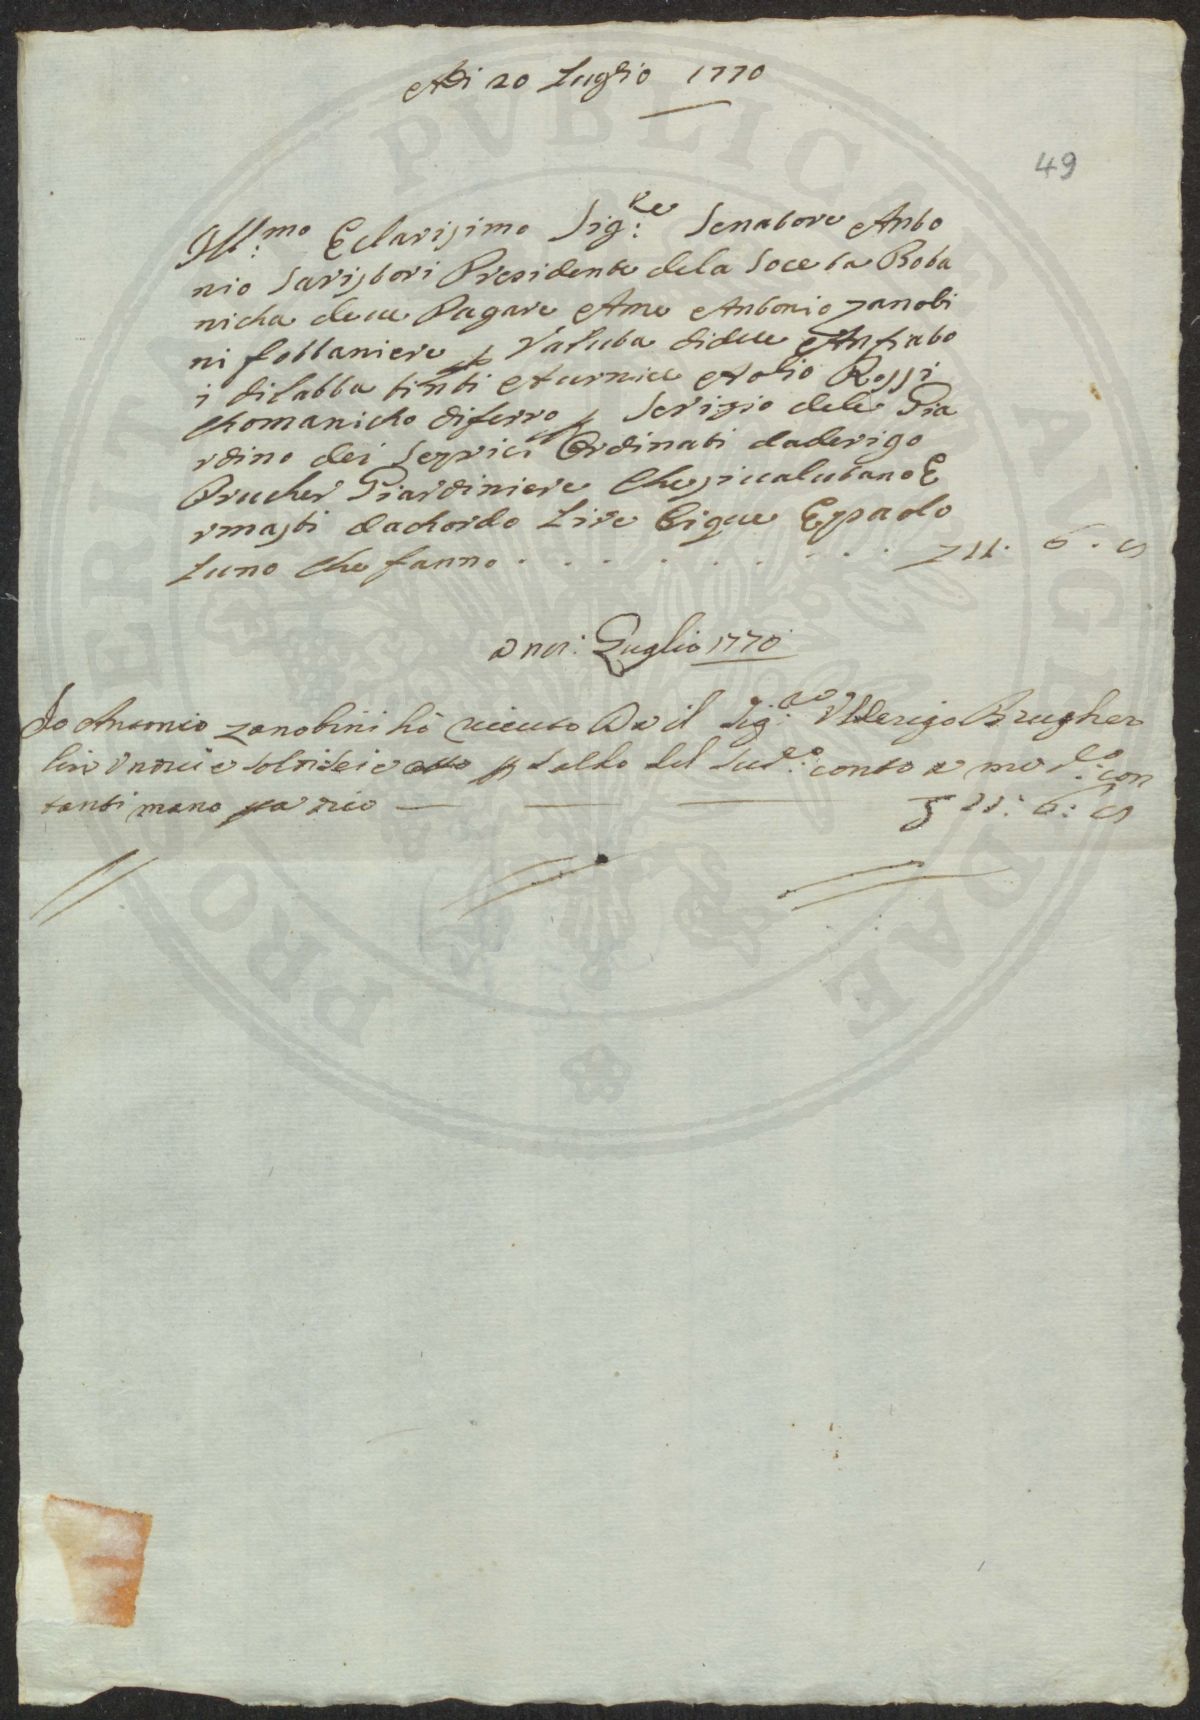 Adi 20 Luglio 1770
49
Ill:mo E clarisimo Sig:re Senatore Anto
nio Saristori Presidente dela Soceta Bota
nicha deve Pagare Ame Antonio zanobi
ni fottaniere p Valuta didue Anfiato
i dilatta tinti A urnice A olio Rossi
chomanicho diferro p Servizio dele Gia
rdino dei Ordinati daderigo
Prucher Giardiniere che si ualutano E
rmasti dachordo Lire Cique E paolo
Luno che fanno . . . . . . . . Z 11. 6. 8
A noi: Luglio 1770
Io Antonio zanobini hò riceuto Da il Sig:re Vlderigo Brugher
lire Vndici e soldi sei e otto p saldo del sud:o conto a me d:o con
tanti mano pa rico — — — — Z 11: 6: 8